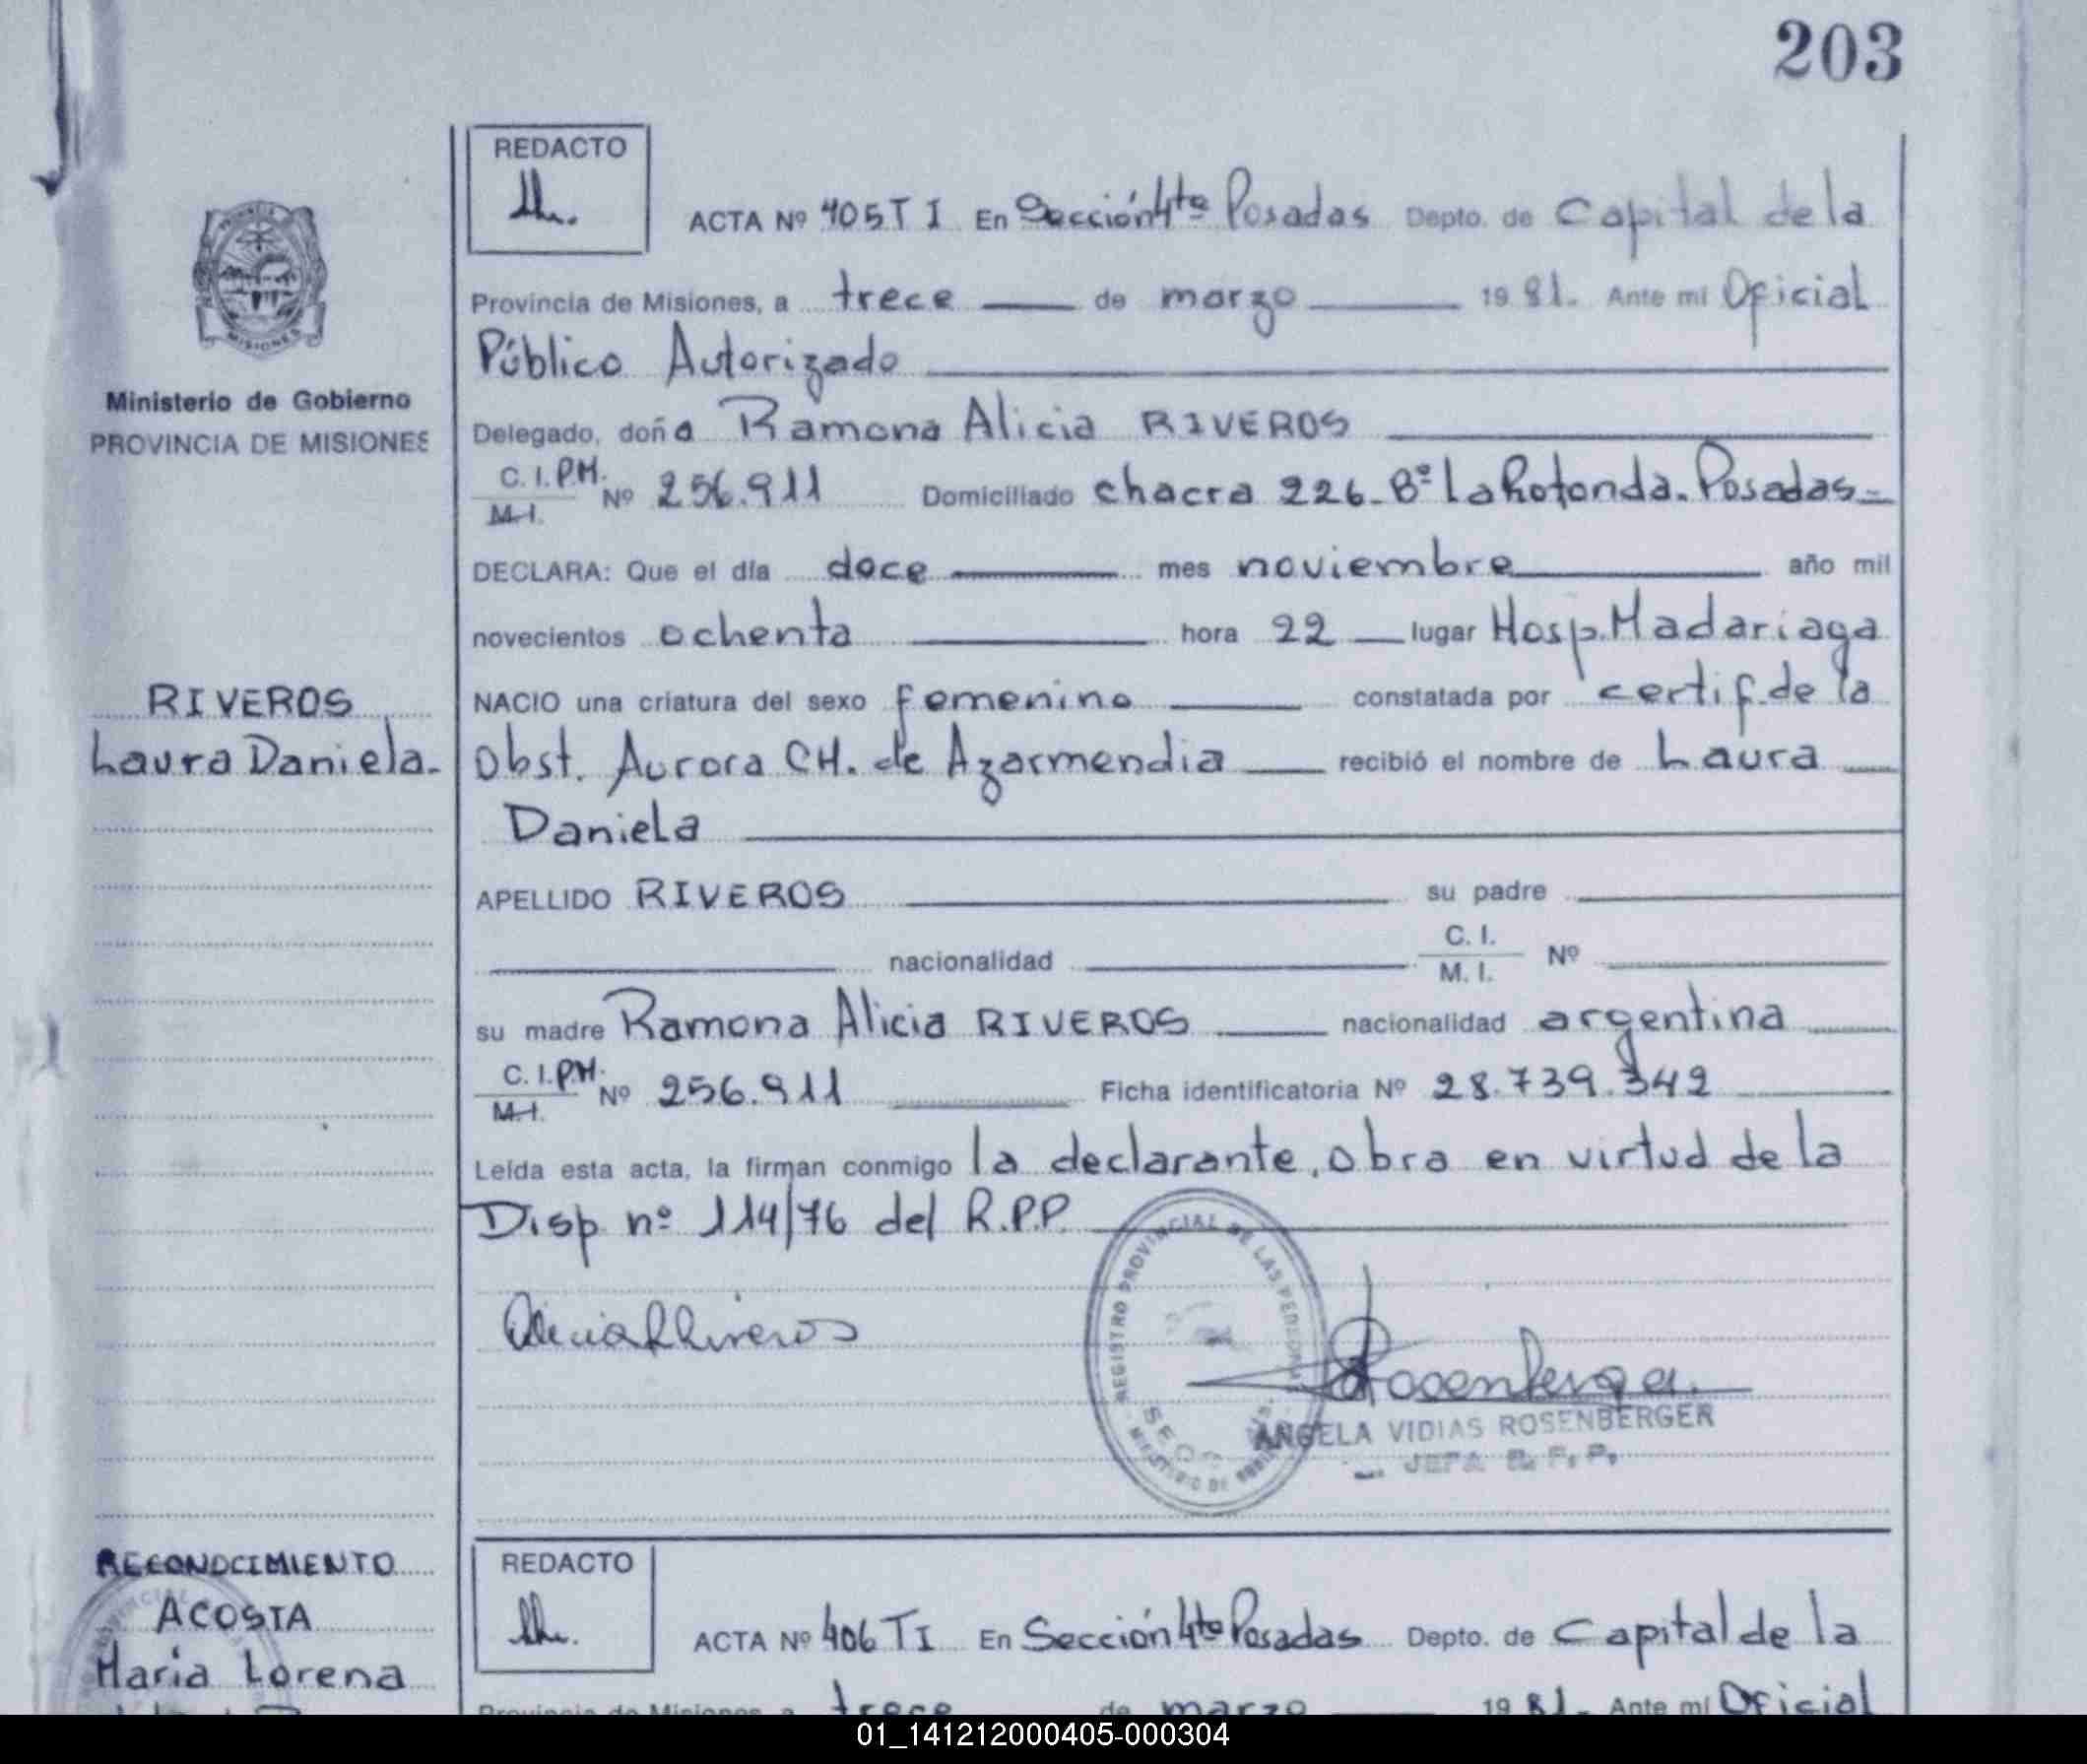 203
REDACTO
ACTA Nº 405 T I En Sección 4ta Posadas Depto. de Capital de la
Provincia de Misiones, a trece de marzo 1981. Ante mi Oficial
Público Autorizado
Ministerio de Gobierno
PROVINCIA DE MISIONES
Delegado, doña Ramona Alicia RIVEROS
C. I. P.M. Nº 256.911 Domiciliado chacra 226_Bº La Rotonda. Posadas_
M. I.
DECLARA: Que el día doce mes noviembre año mil
novecientos ochenta hora 22 lugar Hosp. Madariaga
RIVEROS
Laura Daniela.
NACIO una criatura del sexo femenino constatada por certif. de la
Obst. Aurora CH. de Azarmendia recibió el nombre de Laura
Daniela
APELLIDO RIVEROS su padre
nacionalidad C. I. Nº
M. I.
su madre Ramona Alicia RIVEROS nacionalidad argentina
C. I. P.M. Nº 256.911 Ficha identificatoria Nº 28.739.342
M. I.
Leída esta acta, la firman conmigo la declarante, obra en virtud de la
Disp nº 114/76 del R.P.P.
REGISTRO PROVINCIAL DE LAS PERSONAS
Alicia R Riveros
Rosenberger
ANGELA VIDIAS ROSENBERGER
JEFA R. P. P.
RECONOCIMIENTO
ACOSTA
Maria Lorena
REDACTO
ACTA Nº 406 T I En Sección 4ta Posadas Depto. de Capital de la
Provincia de Misiones, a trece de marzo 1981. Ante mi Oficial
01_141212000405-000304